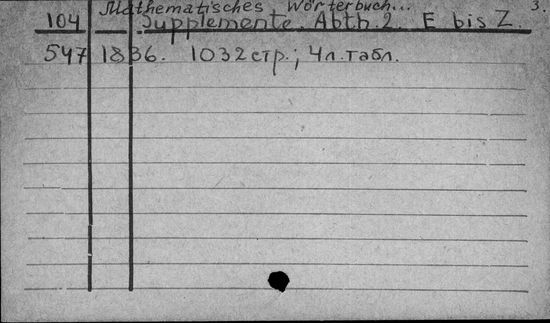 Mathematisches Wörterbuch... 3.
104 Supplemente. Abth. 2. E bis Z.
547 1836. 1032 стр.; 4 л. табл.